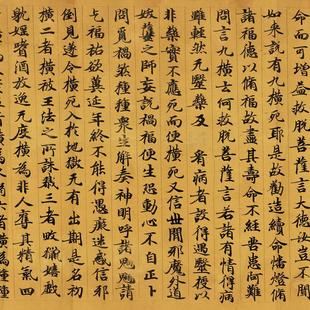 命而可增益救脫菩薩言大德汝豈不聞
如來說有九橫死耶是故勸造續命幡燈修
諸福德以修福故盡其壽命不經苦患阿難
問言九橫云何救脫菩薩言若諸有情得病
雖輕然无醫藥及看病者設復遇醫授以
非藥實不應死而便橫死又信世間邪魔外道
妖孽之師妄說禍福便生恐動心不自正卜
問覓禍殺種種衆生解奏神明呼諸魍魎請
乞福祐欲冀延年終不能得愚癡迷惑信邪
倒見遂令橫死入於地獄无有出期是名初
橫二者橫被王法之所誅戮三者畋獵嬉戲
耽婬嗜酒放逸无度橫為非人奪其精氣四
溺六者橫為種種